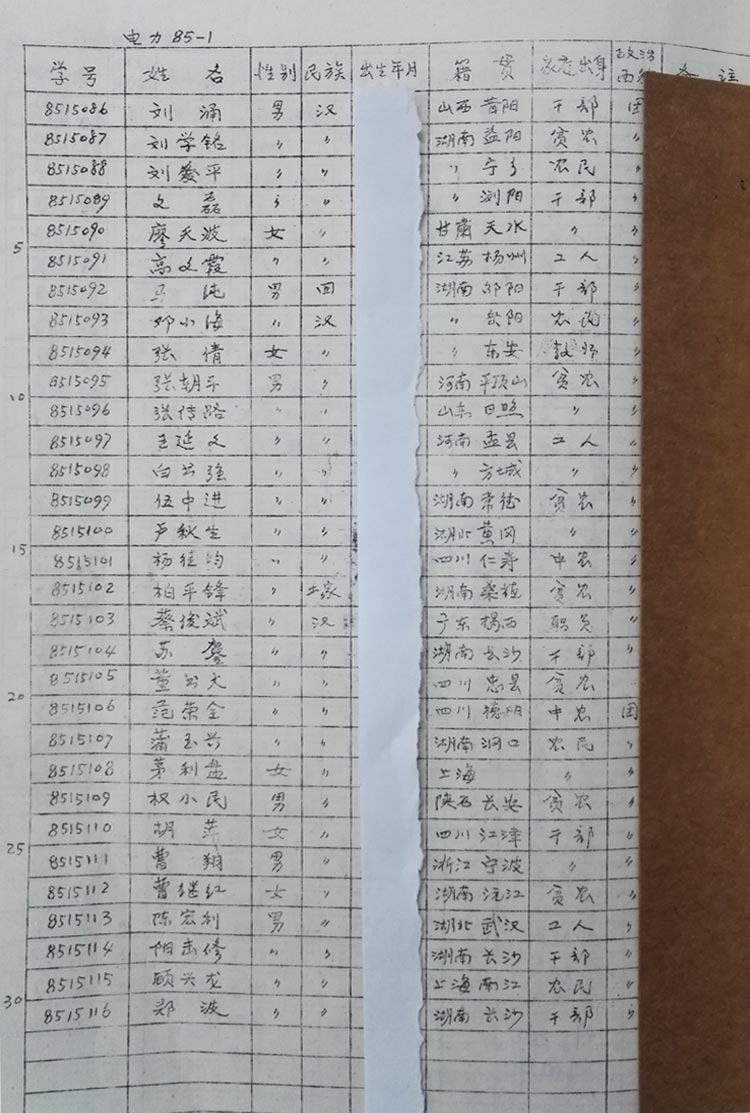 电力85-1
学号 姓名 性别 民族 出生年月 籍贯 家庭出身 政治面 备注
8515086 刘涌 男 汉 山西昔阳 干部 团
8515087 刘学铭 〃 〃 湖南益阳 贫农 〃
8515088 刘爱平 〃 〃 〃 宁乡 农民 〃
8515089 文磊 〃 〃 〃 浏阳 干部 〃
5 8515090 廖天波 女 〃 甘肃天水 〃 〃
8515091 高文霞 〃 〃 江苏杨州 工人 〃
8515092 马纯 男 回 湖南邵阳 干部 〃
8515093 邓小海 〃 汉 〃 岳阳 农民 〃
8515094 张倩 女 〃 〃 东安 教师 〃
10 8515095 张朝平 男 〃 河南平顶山 贫农 〃
8515096 张传路 〃 〃 山东日照 〃 〃
8515097 王延文 〃 〃 河南孟县 工人 〃
8515098 白公强 〃 〃 〃 方城 〃 〃
8515099 伍中进 〃 〃 湖南常德 贫农 〃
15 8515100 卢秋生 〃 〃 湖北黄冈 〃 〃
8515101 杨 均 〃 〃 四川仁寿 中农 〃
8515102 柏平锋 〃 土家 湖南桑植 贫农 〃
8515103 蔡俊斌 〃 汉 广东揭西 职员 〃
8515104 苏 〃 〃 湖南长沙 干部 〃
20 8515105 董 文 〃 〃 四川忠县 贫农
8515106 范荣全 〃 〃 四川德阳 中农 团
8515107 蒲玉兴 〃 〃 湖南洞口 农民 〃
8515108 茅利盘 女 〃 上海 〃 〃
8515109 权小民 男 〃 陕西长安 贫农 〃
25 8515110 胡萍 女 〃 四川江津 干部 〃
8515111 曹翔 男 〃 浙江宁波 〃 〃
8515112 曹继红 女 〃 湖南沅江 贫农 〃
8515113 陈宏利 男 〃 湖北武汉 工人 〃
8515114 阳志修 〃 〃 湖南长沙 干部 〃
30 8515115 顾兴龙 〃 〃 上海南江 农民 〃
8515116 郑波 〃 〃 湖南长沙 干部 〃